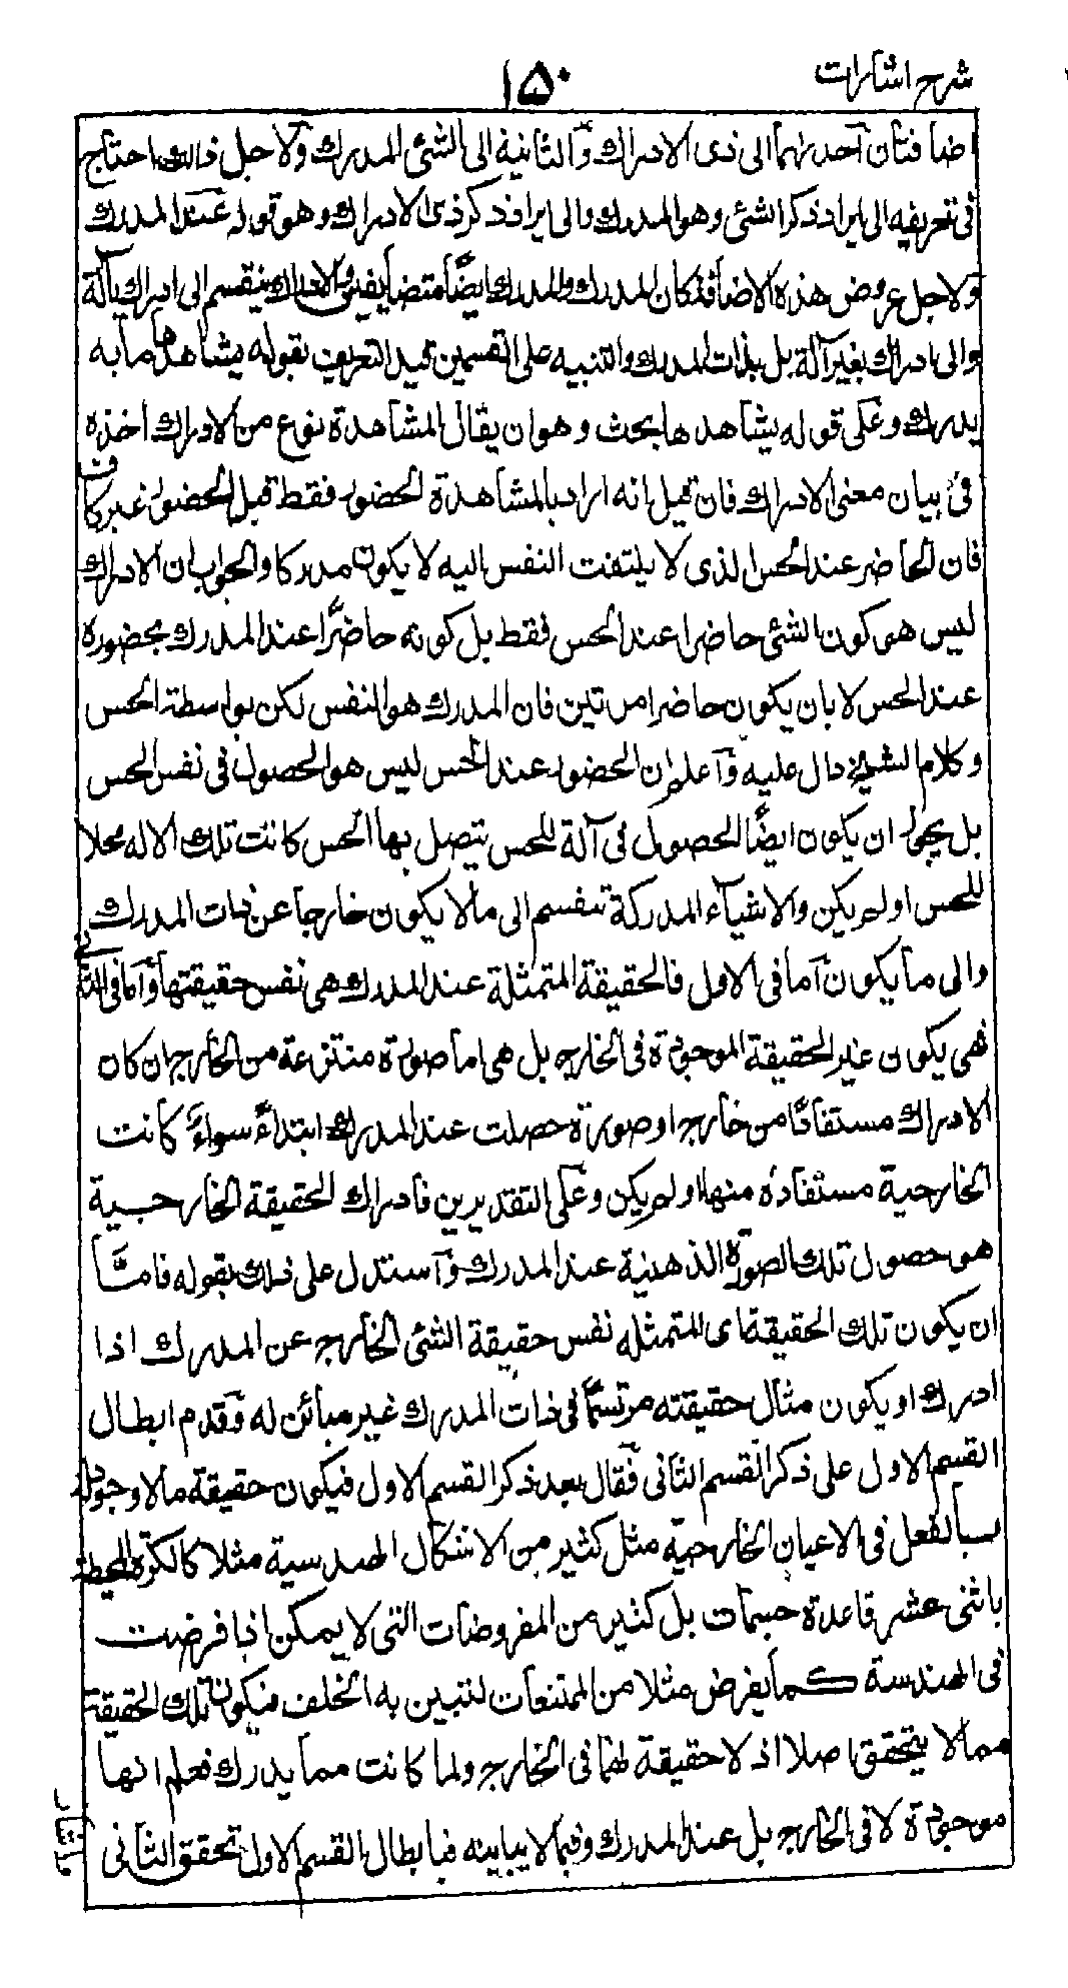 شرح اشارات
۱۵۰
اضافتان احدىهما الى ذى الادراك والثانية الى الشئ المدرك ولاجل ذلك احتاج
فى تعريفه الى ايراد ذكر الشئ وهو المدرك والى ايراد ذكر ذى الادراك وهو قوله عند المدرك
ولاجل عروض هذه الاضافة كان المدرك والمدرك ايضًا متضايفين والادراك ينقسم الى ادراك بآلة
والى ادراك بغير آلة بل بذات المدرك والتنبيه على القسمين قيد التعريف بقوله يشاهدها ما به
يدرك وعلى قوله يشاهدها بحث وهو ان يقال المشاهدة نوع من الادراك اخذه
فى بيان معنى الادراك فان قيل انه اراد بالمشاهدة الحضور فقط قيل الحضور غير كاف
فان الحاضر عند الحس الذى لا يلتفت النفس اليه لا يكون مدركا والجواب ان الادراك
ليس هو كون الشئ حاضرا عند الحس فقط بل كونه حاضرًا عند المدرك بحضوره
عند الحس لا بان يكون حاضرا مرتين فان المدرك هو النفس لكن بواسطة الحس
وكلام الشيخ دال عليه واعلم ان الحضور عند الحس ليس هو الحصول فى نفس الحس
بل يجوز ان يكون ايضًا الحصول فى آلة للحس يتصل بها الحس كانت تلك الاله محلا
للحس او لم يكن والاشياء المدركة تنقسم الى ما لا يكون خارجا عن ذات المدرك
والى ما يكون اما فى الاول فالحقيقة المتمثلة عند المدرك هى نفس حقيقتها واما فى الثانى
فهى يكون غير الحقيقة الموجودة فى الخارج بل هى اما صورة منتزعة من الخارج ان كان
الادراك مستفادًا من خارج او صورة حصلت عند المدرك ابتداءً سواءً كانت
الخارجية مستفادة منها او لم يكن وعلى التقديرين فادراك الحقيقة الخارجية
هو حصول تلك الصورة الذهنية عند المدرك واستدل على ذلك بقوله فامّا
ان يكون تلك الحقيقة اى المتمثله نفس حقيقة الشئ الخارج عن المدرك اذا
ادرك او يكون مثال حقيقته مرتسمًا فى ذات المدرك غير مبائن له وقدم ابطال
القسم الاول على ذكر القسم الثانى فقال بعد ذكر القسم الاول فيكون حقيقة ما لا وجود له
بالفعل فى الاعيان الخارجية مثل كثير من الاشكال الهندسية مثلا كالكرة المحيطة
باثنى عشر قاعدة مخمسات بل كثير من المفروضات التى لا يمكن اذا فرضت
فى الهندسة كما يفرض مثلا من الممتنعات لنتبين به الخلف فيكون تلك الحقيقة
مما لا يتحقق اصلا اذ لا حقيقة لها فى الخارج ولما كانت مما يدرك فعلم انها
موجودة لا فى الخارج بل عند المدرك وفيما لا يباينه فبابطال القسم الاول تحقق الثانى